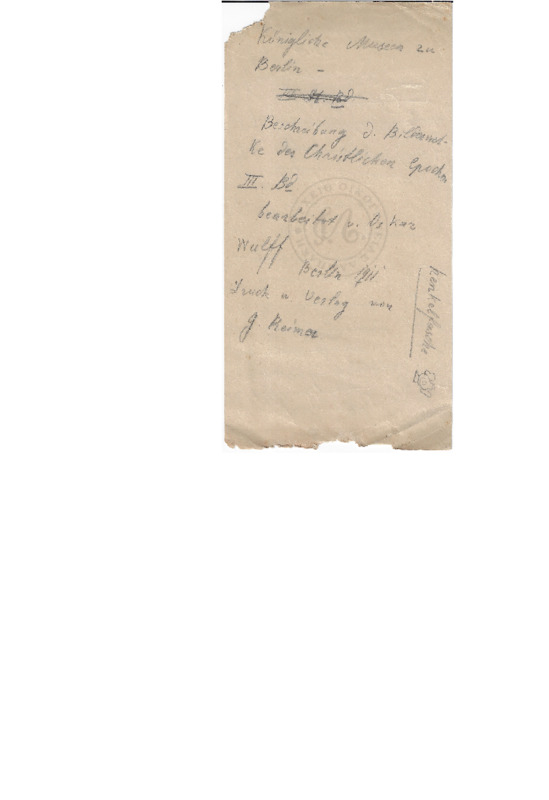 Königliche Museen zu
Berlin –
Beschreibung d. Bildwer-
ke der Christlichen Epochen
III. Bd
bearbeitet v. Dr
Wulff
Berlin 1911
Druck u Verlag von
G Reimer
Henkelflasche